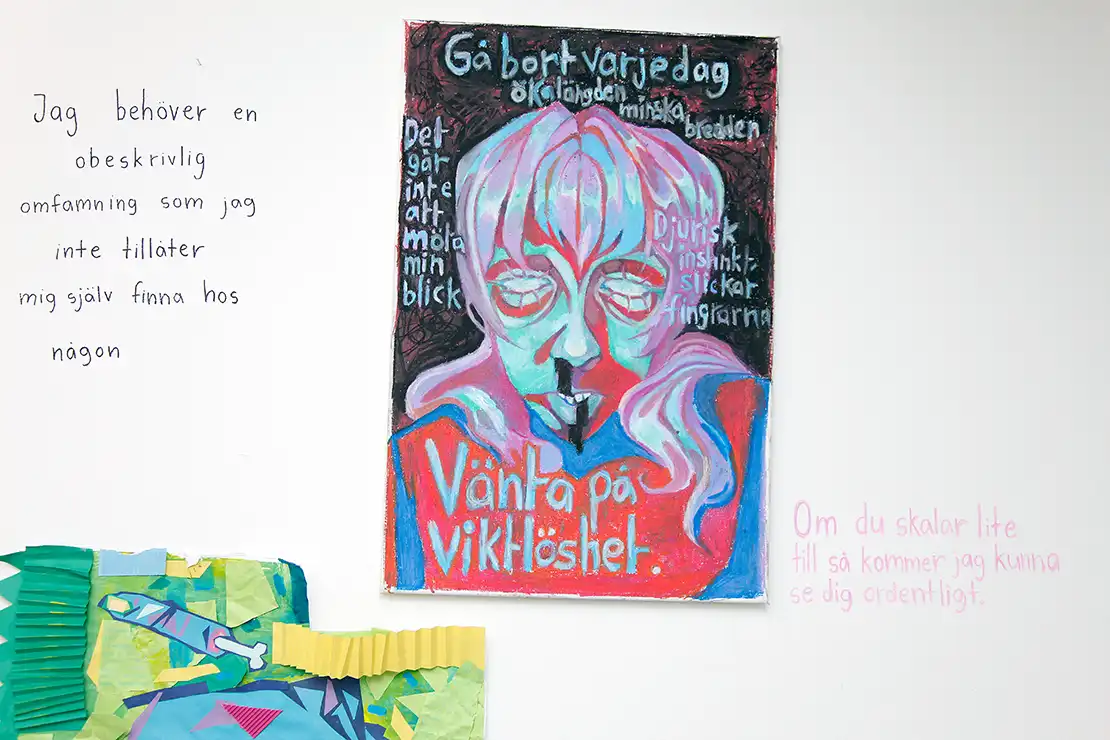 Jag behöver en
obeskrivlig
omfamning som jag
inte tillåter
mig själv finna hos
någon
Gå bort varje dag
öka längden
minska
bredden
Det
går
inte
att
möta
min
blick
Djurisk
instinkt
slickar
fingrarna
Vänta på
viktlöshet.
Om du skalar lite
till så kommer jag kunna
se dig ordentligt.